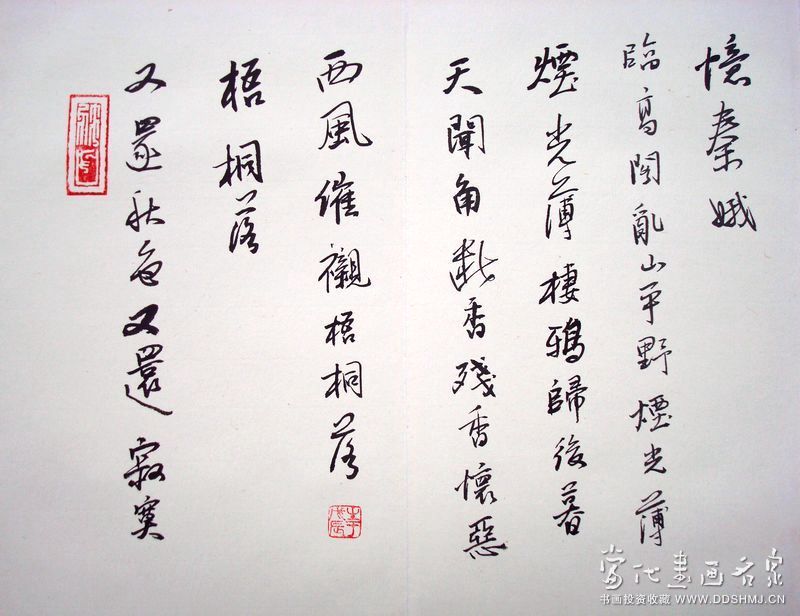 憶秦娥
臨高閣亂山平野煙光薄
煙光薄棲鴉歸後暮
天聞角斷香殘香懷惡
西風催襯梧桐落
梧桐落
又還秋色又還寂寞
当代书画名家
书画投资收藏 WWW.DDSHMJ.CN